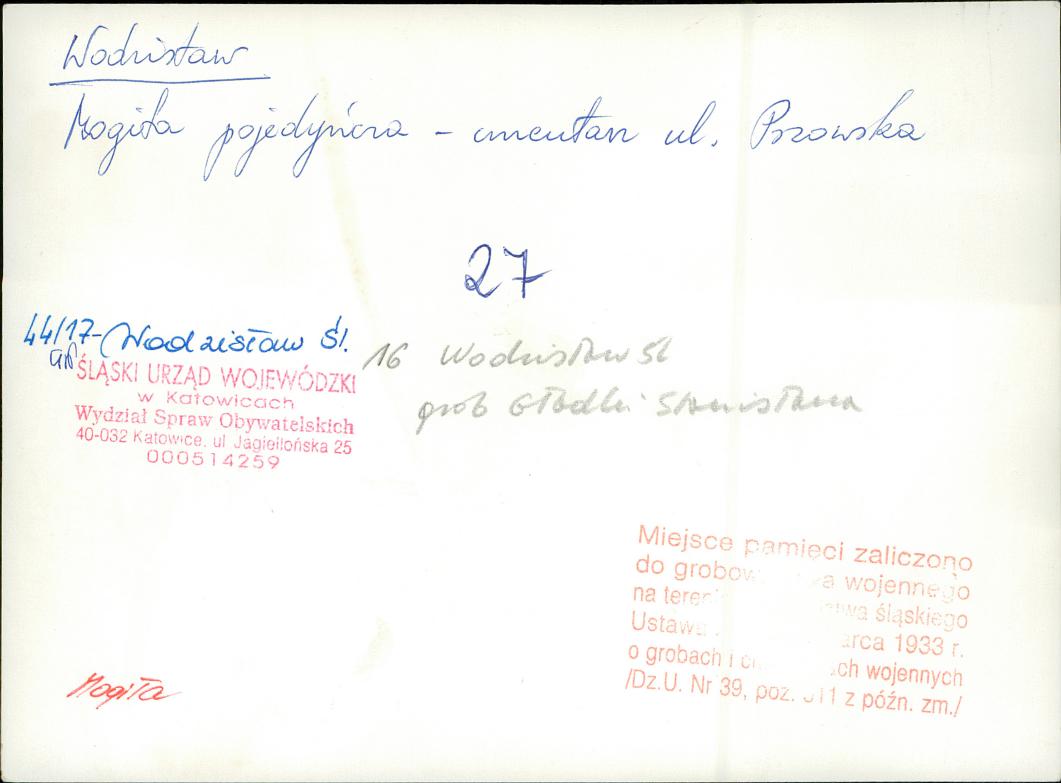 Wodzisław
Mogiła pojedyńcza - cmentarz ul. Pszowska
27
44/17- Wodzisław Śl.
ŚLĄSKI URZĄD WOJEWÓDZKI
w Katowicach
Wydział Spraw Obywatelskich
40-032 Katowice, ul Jagiellońska 25
000514259
16 Wodzisław Śl
grób Gładki Stanisława
Miejsce pamięci zaliczono
do wojennego
na śląskiego
1933 r.
o grobach i wojennych
/Dz.U. Nr 39, poz. z późn. zm./
Mogiła